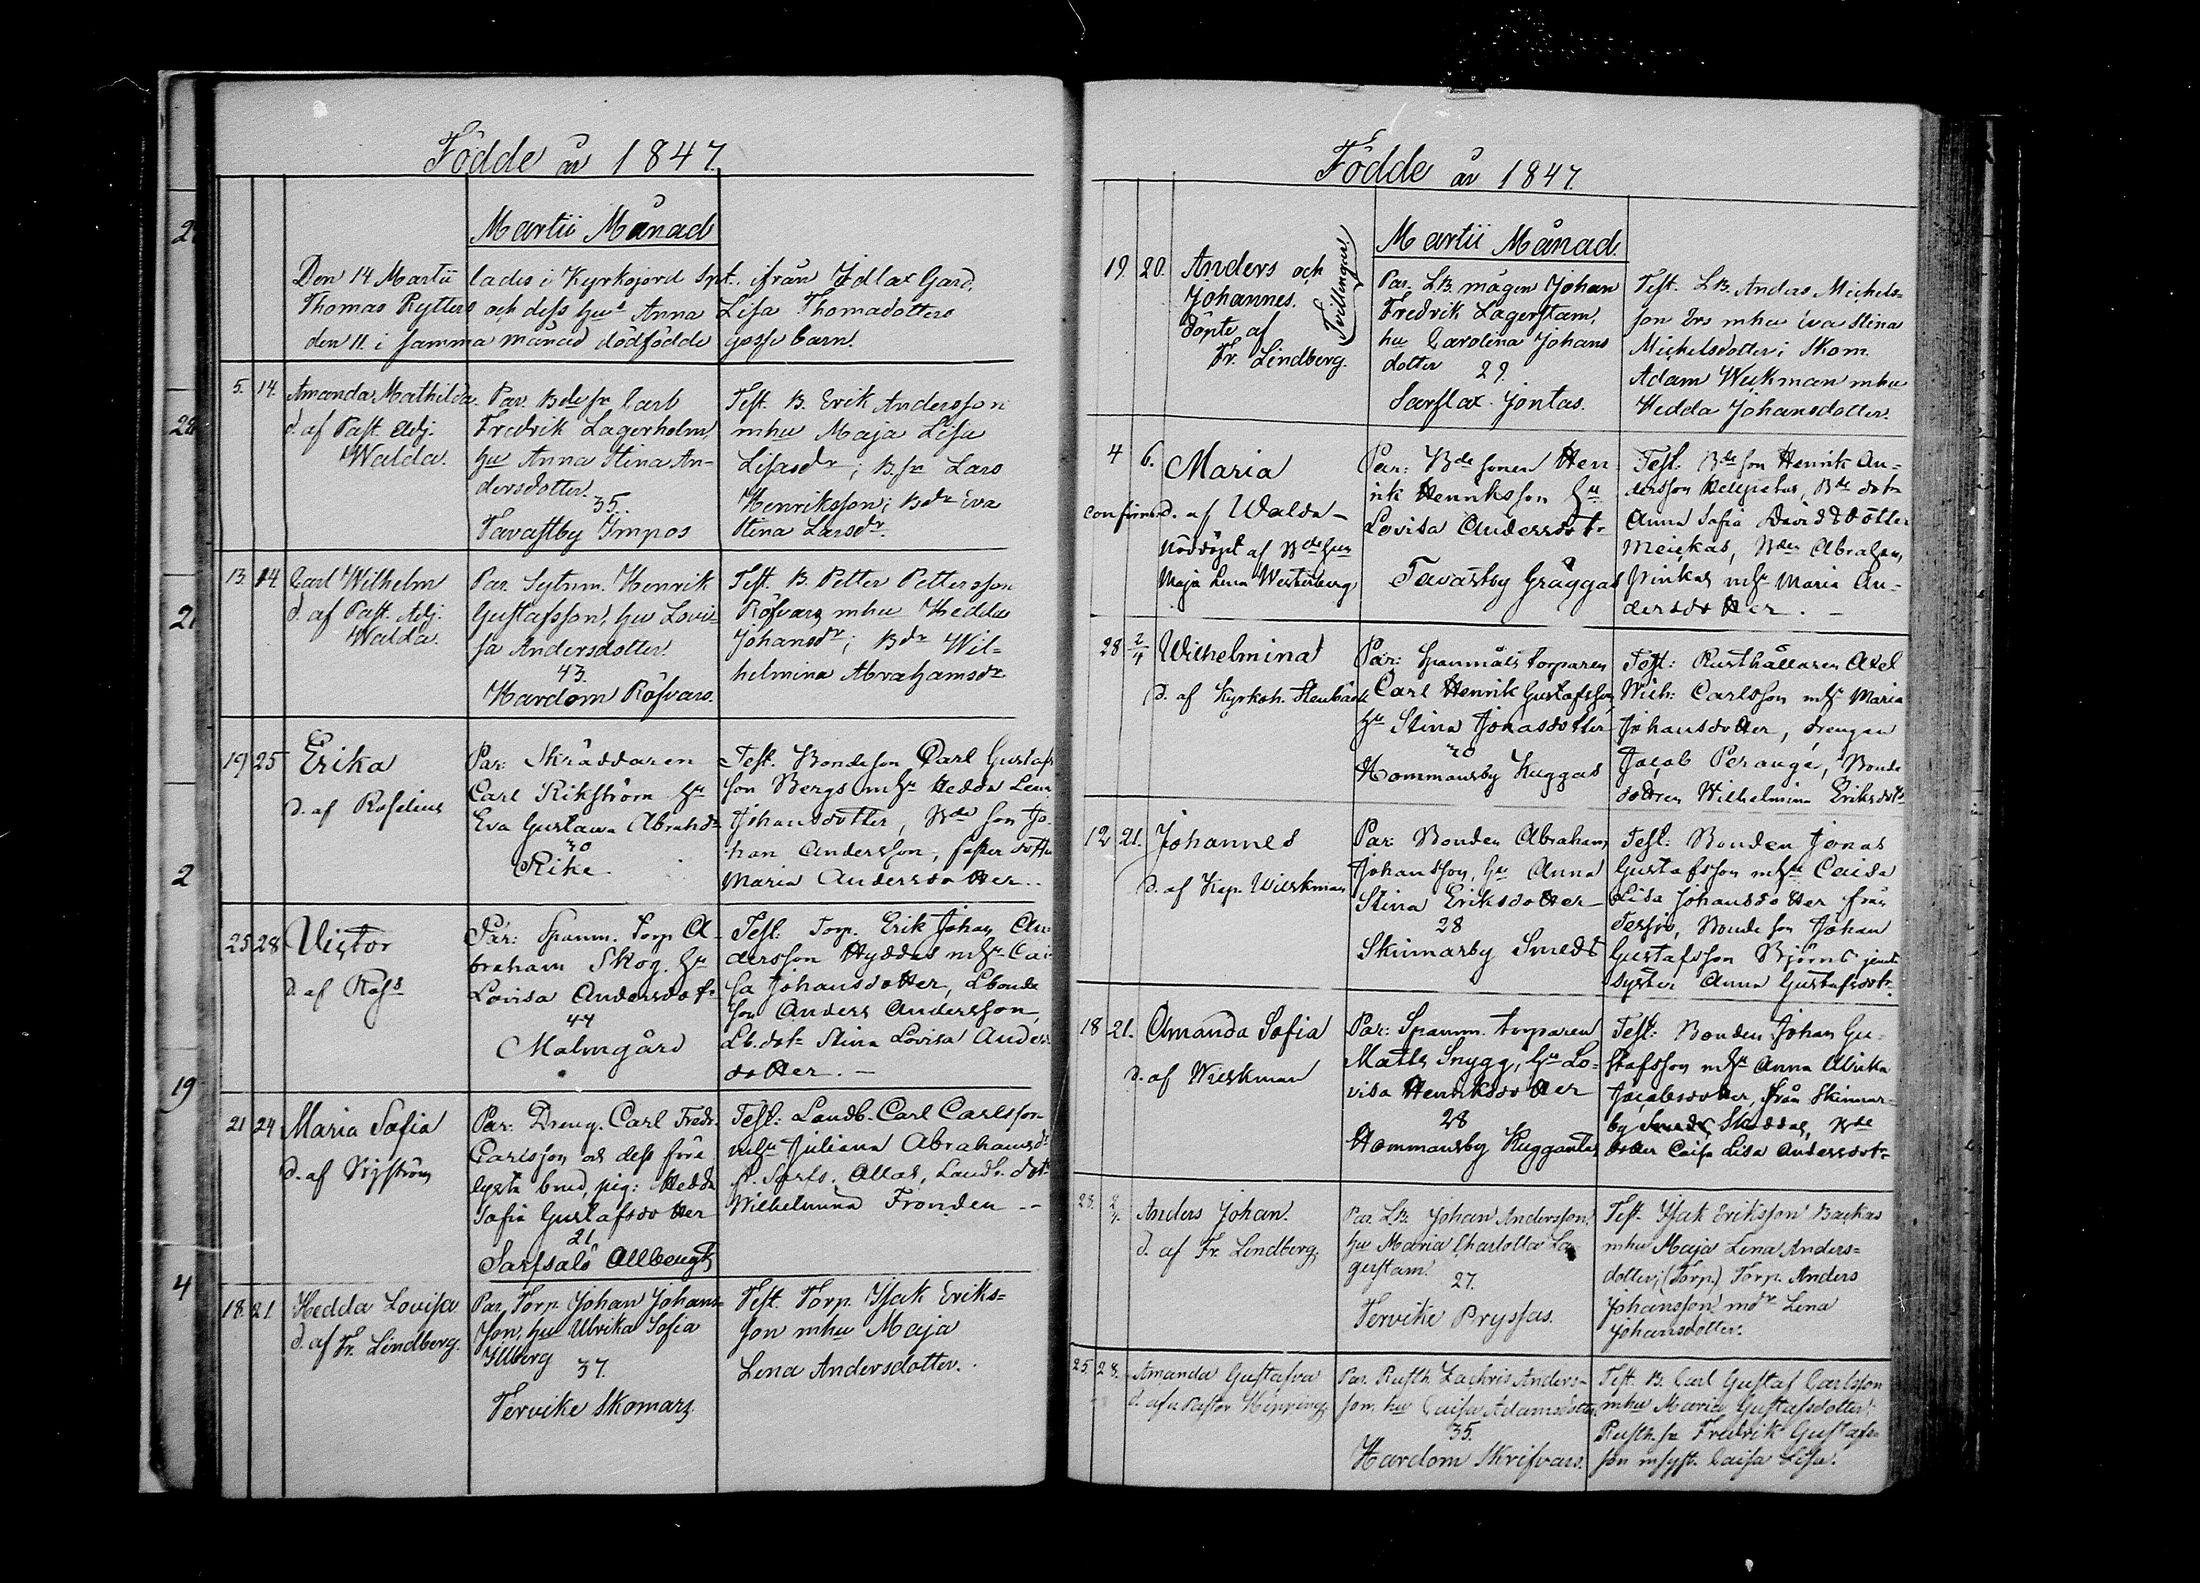 Födde år 1847.
Martii Månad
Den 14 Martii lades i Kyrkojord Spt. ifrån Idlax Gård,
Thomas Rytters och dess hu Anna Lisa Thomadotters
den 11. i samma månad dödfödde gosse barn.
5. 14.
Amanda Mathilda.
d. af Past. Adj.
Walda.
Par. Bdesn Carl
Fredrik Lagerholm,
hu Anna Stina An-
dersdotter.
35.
Tavastby Impos
Test. B. Erik Andersson
mhu Maja Lisa
Lisasdr; B.sn Lars
Henriksson; Bdr Eva
Stina Larsdr.
13. 14.
Carl Wilhelm
d. af Past. Adj.
Walda.
Par. Sytnm. Henrik
Gustafsson, hu Lovi-
sa Andersdotter.
43.
Hardom Röfvars.
Test. B. Petter Pettersson
Röfvars mhu Hedda
Johansdr; Bdr Wil=
helmina Abrahamsdr
19 25
Erika
d. af Roselius
Par: Skräddaren
Carl Rikström hu
Eva Gustava Abrahdr
30
Rike.
Test. Bondeson Carl Gustafs
son Bergs mhu Hedda Lena
Johansdotter, Bde son Jo-
han Andersson, dotter
Maria Andersdotter..
25 28
Victor
d. af Ross
Par: Spanm. Torp A-
braham Skog. hu
Lovisa Andersdotr
44
Malmgård
Test: Torp. Erik Johan An
dersson Hyddas mhu Cai
sa Johansdotter, Lbonde
son Anders Andersson,
Lb. dotr Stina Lovisa Anders
dotter. —
21 24
Maria Sofia
d. af Nyström
Par: Dreng. Carl Fredr.
Carlsson och dess före
lysta brud, pig: Hedda
Sofia Gustafsdotter
21
Sarfsalö Allbengts
Test: Landb. Carl Carlsson
mhu Juliana Abrahamsdr
fr. Sarfs. Allas, Landb. dotr
Wilhelmina Fronden --
18. 21
Hedda Lovisa
d. af Fr. Lindberg.
Par. Torp. Johan Johans-
son, hu Ulrika Sofia
Illberg
37.
Tervike Skomars
Test. Torp. Isak Eriks=
son mhu Maja
Lena Andersdotter.
Födde år 1847.
Martii Månad.
19. 20.
Anders och
Johannes.
Tvillingar.
döpte af
Fr. Lindberg.
Par. LB. mågen Johan
Fredrik Lagerstam,
hu Carolina Johans
dotter
29.
Sarflax Jontas.
Test. LB. Andas Michels=
son Ers mhu Eva Stina
Michelsdotter; Skom.
Adam Weckman mhu
Hedda Johansdotter.
4 6.
Maria
confirmerd. af Walda —
Nöddöpt af Bdehun
Maja Lena Westerberg
Par: Bde sonen Hen
rik Henriksson hu
Lovisa Andersdotr
Tavastby Gråggas
Test: Bde son Henrik An-
dersson, Bde dotr
Anna Sofia Davidsdotter
Meickas, Bden Abraham
Finkas mhu Maria An-
dersdotter. —
28 2/4
Wilhelmina
d. af Kyrkoh. Stenbäck
Par: Spanmåls torparen
Carl Henrik Gustafsson,
hu Stina Jonasdotter
30
Hommansby Kuggas
Test: Rusthållaren Axel
Wilh: Carlsson mhu Maria
Johansdotter, drengen
Jacob Perange, Bonde
dottren Wilhelmina Eriksdotr
12 21.
Johannes
d. af Kap. Wieskman
Par: Bonden Abraham
Johansson, hu Anna
Stina Eriksdotter
28
Skinnarby Smeds
Test: Bonden Jonas
Gustafsson mhu Caisa
Lisa Johansdotter från
Tersjö, Bonde son Johan
Gustafsson Björns jemte
syster Anna Gustafsdotr
18 21.
Amanda Sofia
d. af Wieskman
Par: Spanm. torparen
Matts Snygg, hu Lo-
visa Henriksdotter
28
Hommansby Kuggantas
Test: Bonden Johan Gu-
stafsson mhu Anna Ulrika
Jacobsdotter, från Skinnar-
by Skoddas, Bde
dotter Caisa Lisa Andersdotr
28. 2/4.
Anders Johan.
d. af Fr. Lindberg.
Par. LB. Johan Andersson,
hu Maria Charlotta La
gerstam.
27.
Tervike Pryssas.
Test. Isak Eriksson Backas
mhu Maja Lena Anders=
dotter; (Torp) Torp. Anders
Johansson mdr Lena
Johansdotter.
25. 28.
Amanda Gustafva
d. af v. Pastor Hipping
Par. Rusth. Zachris Anders-
son, hu Caisa Adamsdotter.
35.
Hardom Skrifvars.
Test. B. Carl Gustaf Carlsson
mhu Maria Gustafsdotter;
Rusth.sn Fredrik Gustafs-
son msyst. Caisa Lisa.
2
19
4